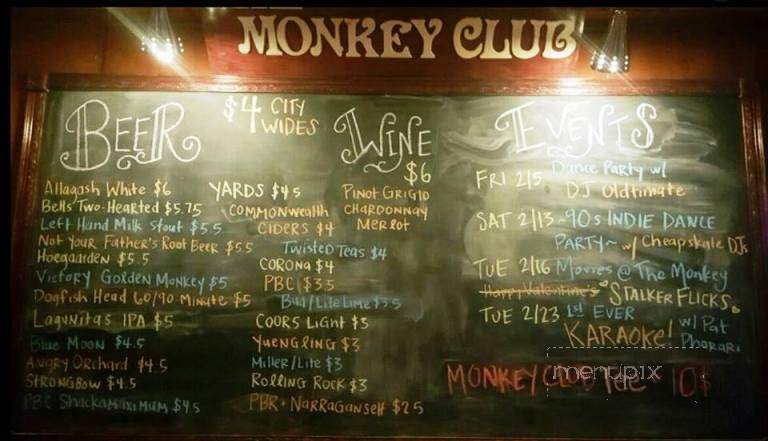 THE
MONKEY CLUB
BEER
Allagash White $6
Bells Two-Hearted $5.75
Left Hand Milk Stout $5.5
Not Your Father's Root Beer $5.5
Hoegaarden $5.5
Victory Golden Monkey $5
Dogfish Head 60/90 Minute $5
Lagunitas IPA $5
Blue Moon $4.5
Angry Orchard $4.5
Strongbow $4.5
PBC Shackamaximum $4.5
$4 CITY WIDES
YARDS $4.5
COMMONWEALTH
CIDERS $4
Twisted Teas $4
CORONA $4
PBC $3.5
Bud/Lite Lime $3.5
COORS LIGHT $3
YUENGLING $3
Miller/Lite $3
ROLLING ROCK $3
PBR · NARRAGANSETT $2.5
WINE
$6
PINOT GRIGIO
CHARDONNAY
MERLOT
EVENTS
FRI 2/5 Dance Party w/
DJ Oldtimate
SAT 2/13 - 90s INDIE DANCE
PARTY~ w/ Cheapskate DJs
TUE 2/16 Movies @ The Monkey
Happy Valentine's "STALKER FLICKS"
TUE 2/23 1st EVER
KARAOKE! w/ Pat
Phorari
MONKEY CLUB Tee - 10$
menupix